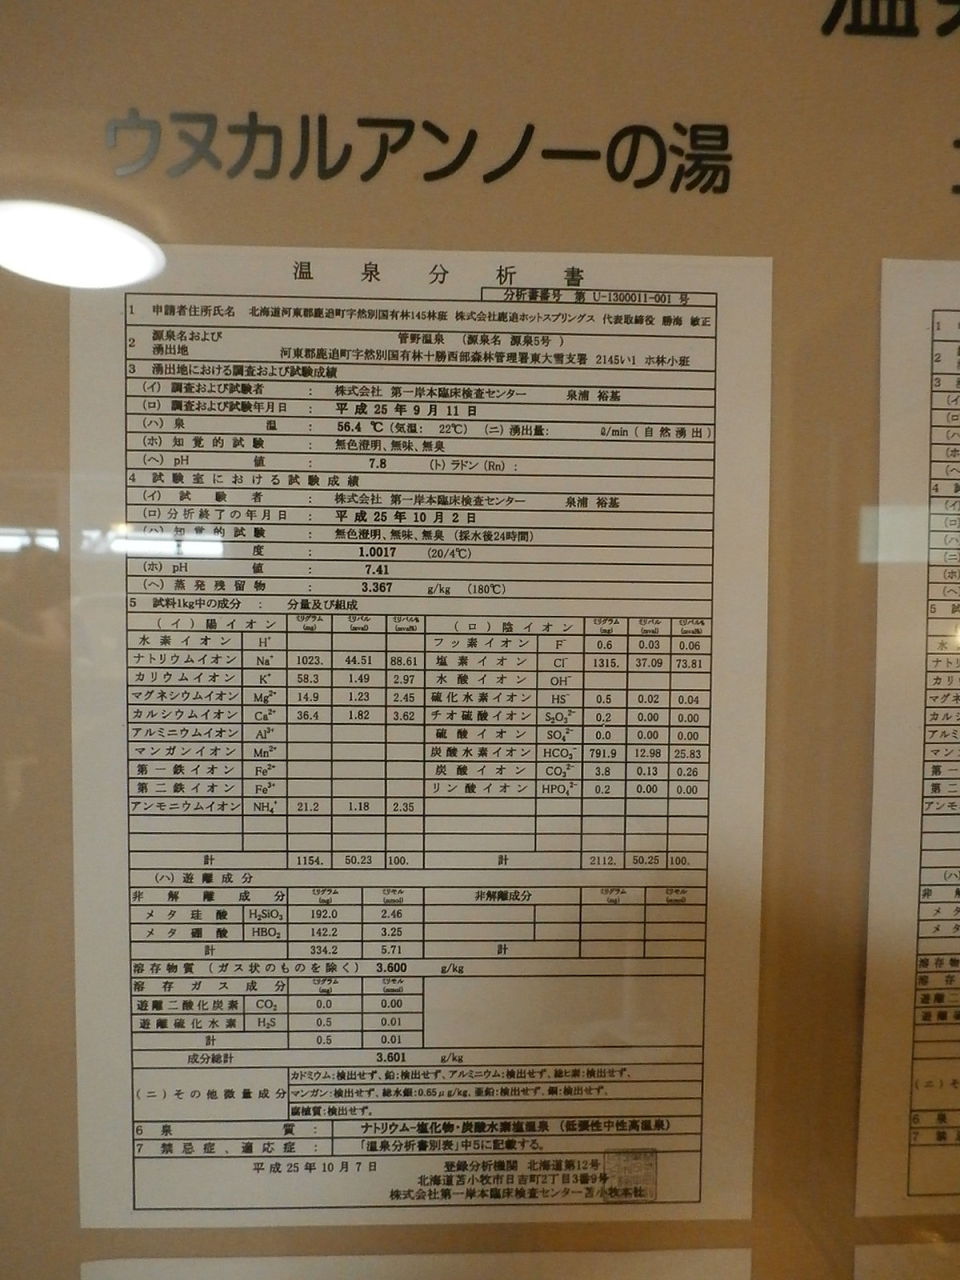 ウヌカルアンノーの湯
温泉分析書
分析書番号 第 U-1300011-001 号
1 申請者住所氏名 北海道河東郡鹿追町字然別国有林145林班 株式会社鹿追ホットスプリングス 代表取締役 勝海 敏正
2 源泉名および湧出地 菅野温泉 (源泉名 源泉5号)
河東郡鹿追町字然別国有林十勝西部森林管理署東大雪支署 2145い1 ホ林小班
3 湧出地における調査および試験成績
(イ) 調査および試験者 : 株式会社 第一岸本臨床検査センター 泉浦 裕基
(ロ) 調査および試験年月日 : 平成 25 年 9 月 11 日
(ハ) 泉温 : 56.4 ℃ (気温: 22℃) (ニ) 湧出量: ℓ/min (自然湧出)
(ホ) 知覚的試験 : 無色澄明、無味、無臭
(ヘ) pH 値 : 7.8 (ト) ラドン (Rn) :
4 試験室における試験成績
(イ) 試験者 : 株式会社 第一岸本臨床検査センター 泉浦 裕基
(ロ) 分析終了の年月日 : 平成 25 年 10 月 2 日
(ハ) 知覚的試験 : 無色澄明、無味、無臭 (採水後24時間)
度 : 1.0017 (20/4℃)
(ホ) pH 値 : 7.41
(ヘ) 蒸発残留物 : 3.367 g/kg (180℃)
5 試料1kg中の成分 : 分量及び組成
(イ) 陽イオン ミリグラム (mg) ミリバル (mval) ミリバル% (mval%) (ロ) 陰イオン ミリグラム (mg) ミリバル (mval) ミリバル% (mval%)
水素イオン H⁺ フッ素イオン F⁻ 0.6 0.03 0.06
ナトリウムイオン Na⁺ 1023. 44.51 88.61 塩素イオン Cl⁻ 1315. 37.09 73.81
カリウムイオン K⁺ 58.3 1.49 2.97 水酸イオン OH⁻
マグネシウムイオン Mg²⁺ 14.9 1.23 2.45 硫化水素イオン HS⁻ 0.5 0.02 0.04
カルシウムイオン Ca²⁺ 36.4 1.82 3.62 チオ硫酸イオン S₂O₃²⁻ 0.2 0.00 0.00
アルミニウムイオン Al³⁺ 硫酸イオン SO₄²⁻ 0.0 0.00 0.00
マンガンイオン Mn²⁺ 炭酸水素イオン HCO₃⁻ 791.9 12.98 25.83
第一鉄イオン Fe²⁺ 炭酸イオン CO₃²⁻ 3.8 0.13 0.26
第二鉄イオン Fe³⁺ リン酸イオン HPO₄²⁻ 0.2 0.00 0.00
アンモニウムイオン NH₄⁺ 21.2 1.18 2.35
計 1154. 50.23 100. 計 2112. 50.25 100.
(ハ) 遊離成分
非解離成分 ミリグラム (mg) ミリモル (mmol) 非解離成分 ミリグラム (mg) ミリモル (mmol)
メタ珪酸 H₂SiO₃ 192.0 2.46
メタ硼酸 HBO₂ 142.2 3.25
計 334.2 5.71 計
溶存物質 (ガス状のものを除く) 3.600 g/kg
溶存ガス成分 ミリグラム (mg) ミリモル (mmol)
遊離二酸化炭素 CO₂ 0.0 0.00
遊離硫化水素 H₂S 0.5 0.01
計 0.5 0.01
成分総計 3.601 g/kg
(ニ) その他微量成分 カドミウム:検出せず、鉛:検出せず、アルミニウム:検出せず、総ヒ素:検出せず、
マンガン:検出せず、総水銀:0.65μg/kg、亜鉛:検出せず、銅:検出せず、
腐植質:検出せず。
6 泉質 : ナトリウム-塩化物・炭酸水素塩温泉 (低張性中性高温泉)
7 禁忌症、適応症 : 「温泉分析書別表」中5に記載する。
平成 25 年 10 月 7 日 登録分析機関 北海道第12号
北海道苫小牧市日吉町2丁目3番9号
株式会社第一岸本臨床検査センター苫小牧本社